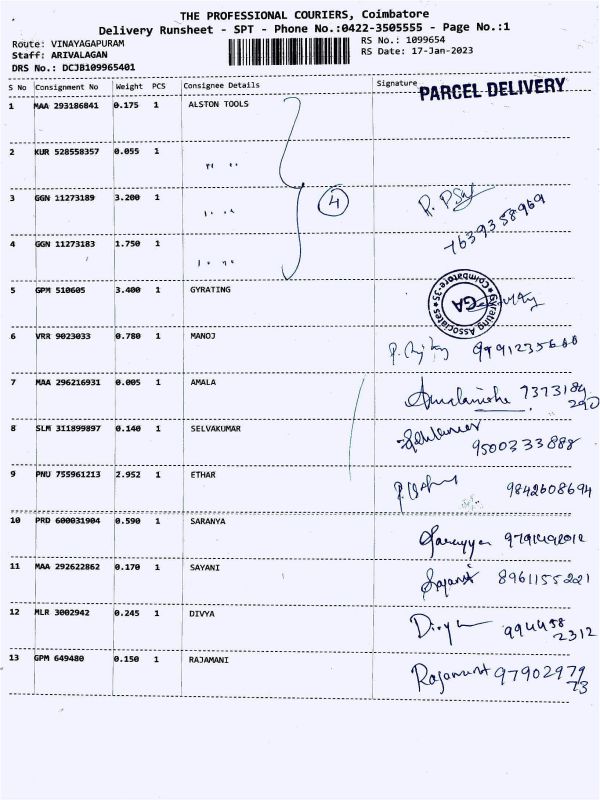 THE PROFESSIONAL COURIERS, Coimbatore
Delivery Runsheet - SPT - Phone No.:0422-3505555 - Page No.:1
Route: VINAYAGAPURAM
RS No.: 1099654
Staff: ARIVALAGAN
RS Date: 17-Jan-2023
DRS No.: DCJB109965401
S No Consignment No Weight PCS Consignee Details Signature
PARCEL DELIVERY
1 MAA 293186841 0.175 1 ALSTON TOOLS
2 KUR 528558357 0.055 1 " "
3 GGN 11273189 3.200 1 " "
4
7639358969
4 GGN 11273183 1.750 1 " "
5 GPM 510605 3.400 1 GYRATING
Gyrating Associates * Coimbatore-35 *
GA
6 VRR 9023033 0.780 1 MANOJ
7 MAA 296216931 0.005 1 AMALA 7373184
290
8 SLM 311899897 0.140 1 SELVAKUMAR
9500333888
9 PNU 755961213 2.952 1 ETHAR 9842608694
10 PRD 600031904 0.590 1 SARANYA
11 MAA 292622862 0.170 1 SAYANI Sayani 8961155221
12 MLR 3002942 0.245 1 DIVYA Divya 994458
2312
13 GPM 649480 0.150 1 RAJAMANI Rajamani 97902979
73